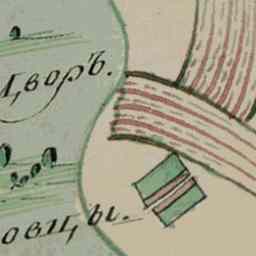 Дворъ.
овцы.